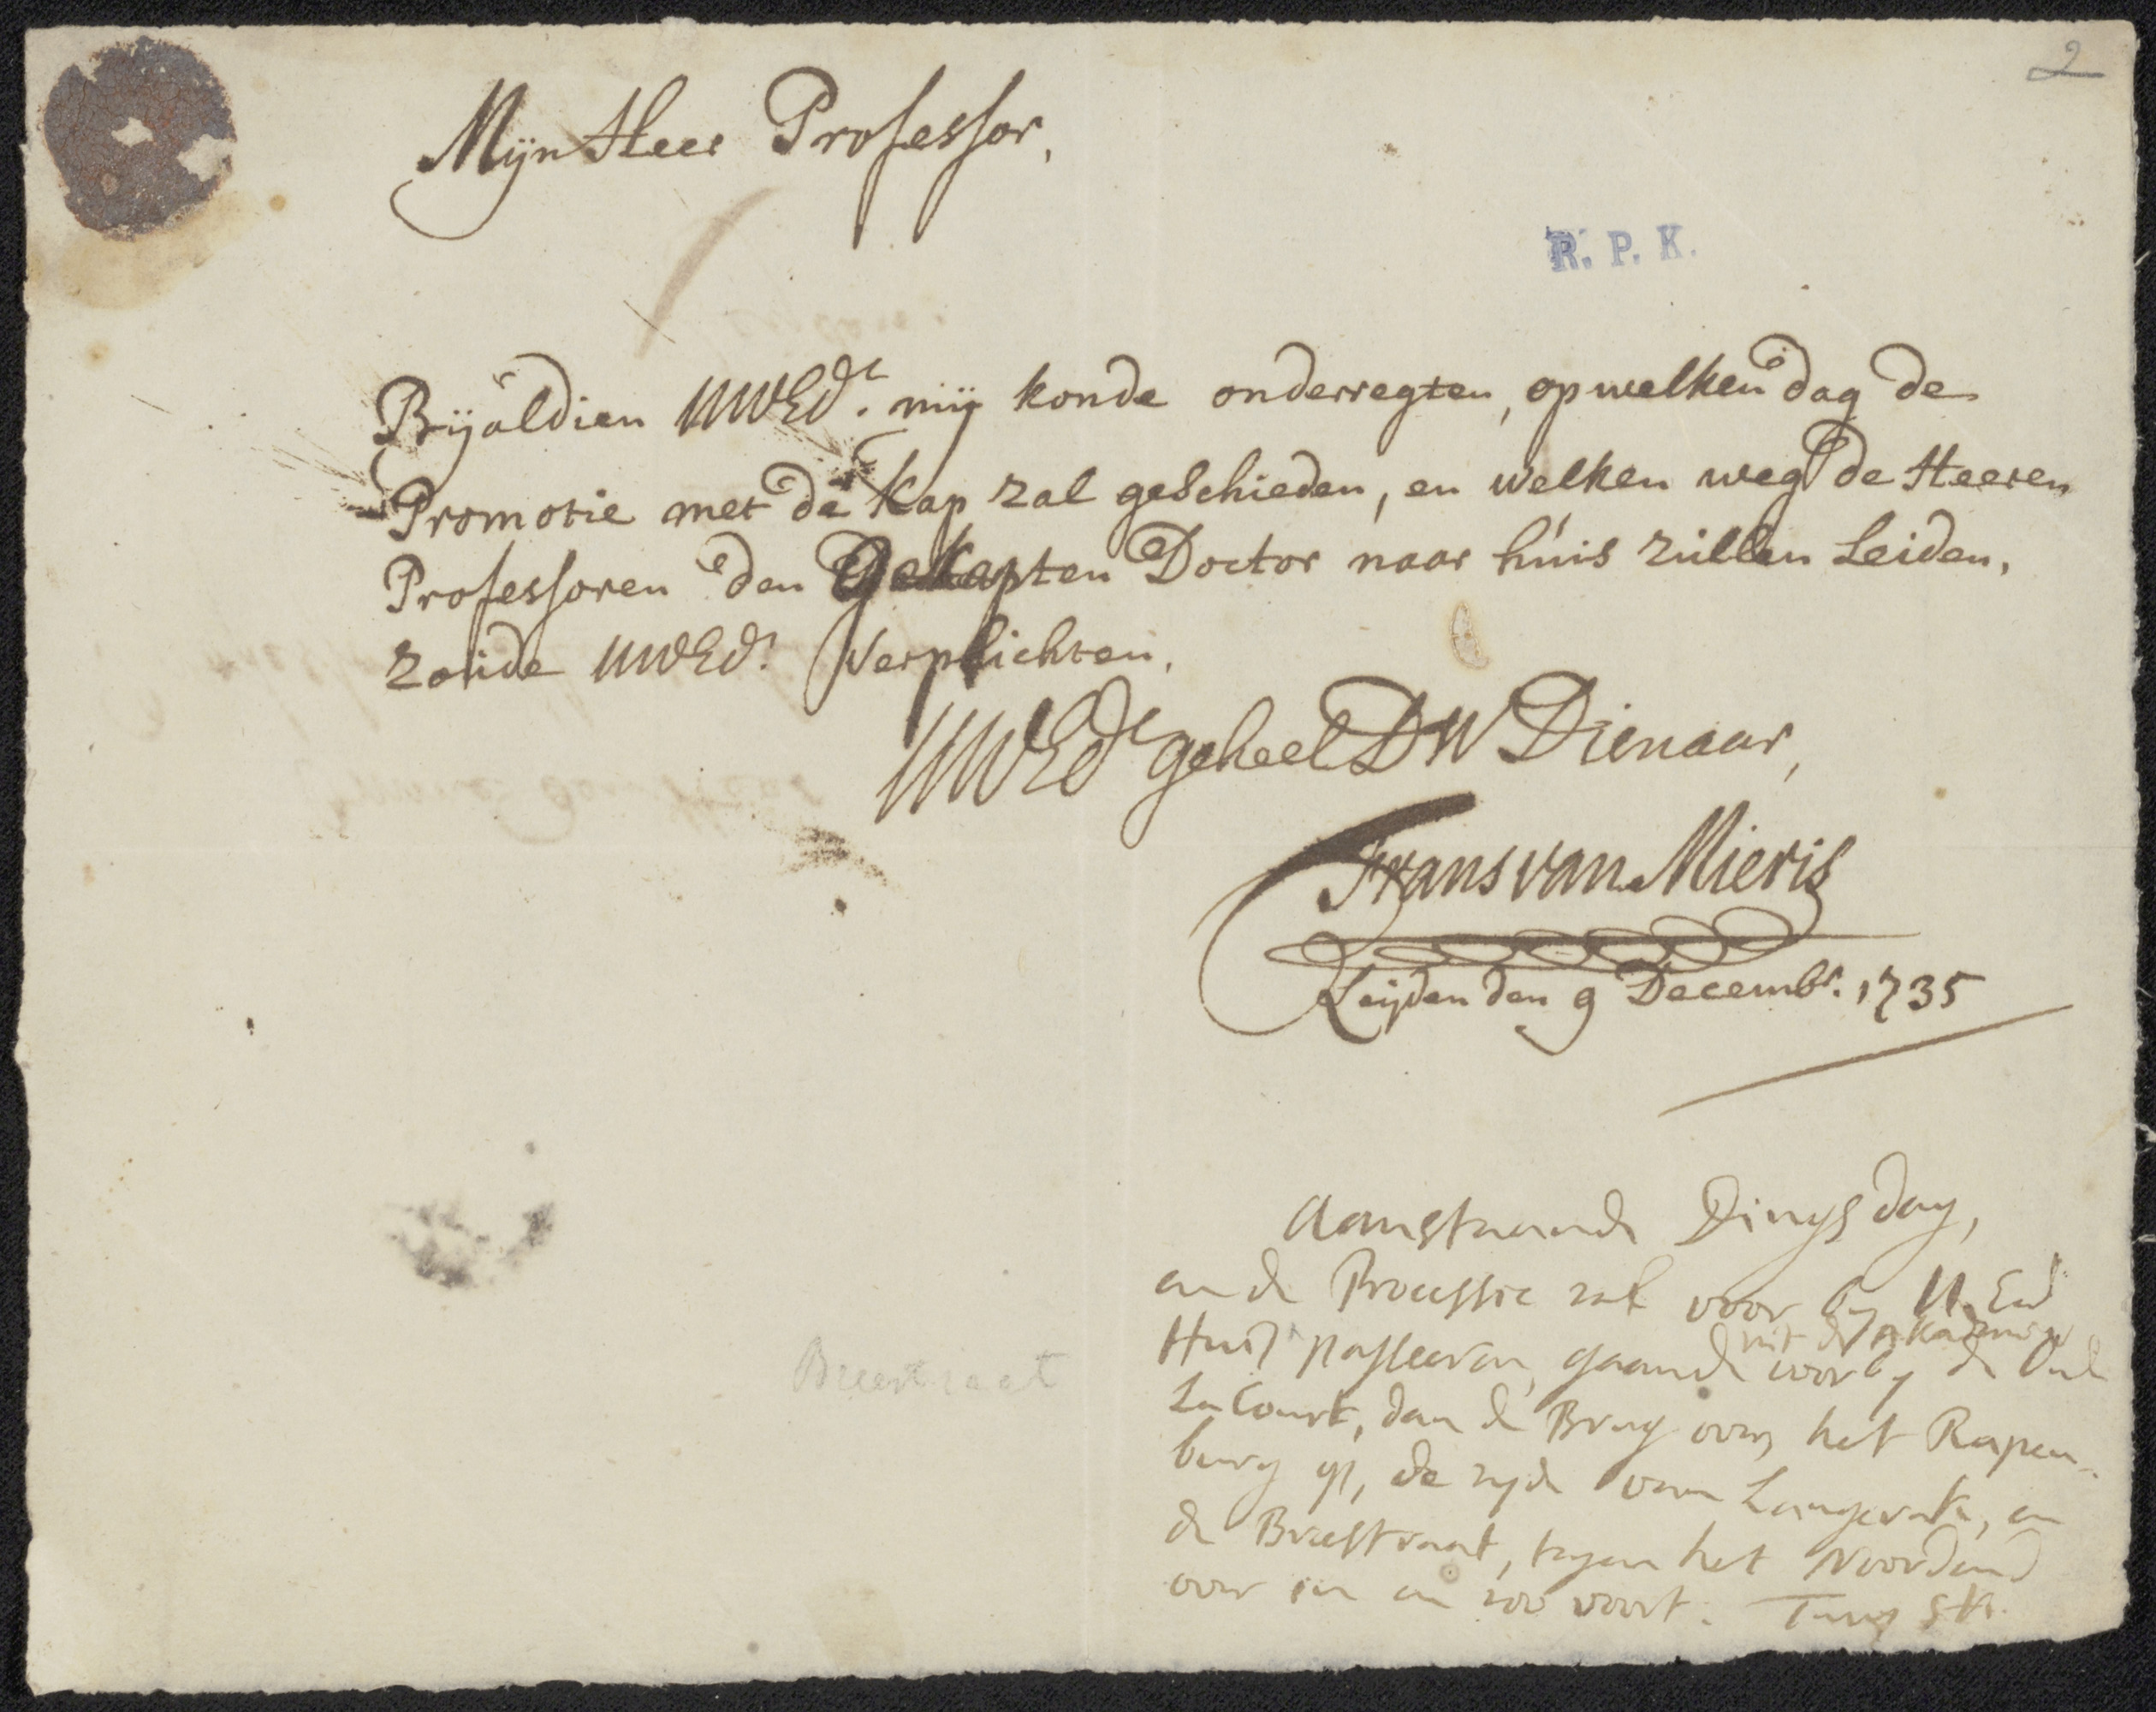 2
Mijn Heer Professor,
R. P. K.
Bijaldien UWEd.e mij konde onderregten, op welken dag de
Promotie met de Kap zal geschieden, en welken weg de Heeren
Professoren den Gekapten Doctor naar huis zullen Leiden,
zoude UWEd. Verplichten.
UWEd.e geheel DW Dienaar,
Frans van Mieris
Leijden den 9 Decembr. 1735
Aanstaande Dingsdag,
en de Processie zal voor by U. Ed
uit de Akademie
Huis passeeren, gaande voorby de
La Court, dan de Brug over, het Rapen-
burg op, de zyde van Langerak, en
de Breestraat, tegen het Noordend
over in en zoo voort.
Breestraat